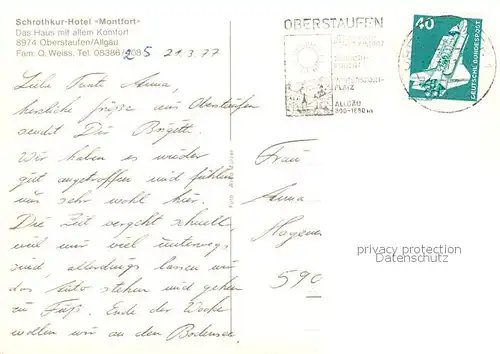 Schrothkur-Hotel «Montfort»
Das Haus mit allem Komfort
8974 Oberstaufen/Allgäu
Fam. O. Weiss, Tel. 08386/
25
21.3.77
Liebe Tante Anna,
herzliche Grüße aus Oberstaufen
sendet Dir Brigitte.
Wir haben es wieder
gut angetroffen und fühlen
uns sehr wohl hier.
Die Zeit vergeht schnell,
weil wir viel unterwegs
sind, allerdings lassen wir
das Auto stehen und gehen
zu Fuß. Ende der Woche
wollen wir an den Bodensee
OBERSTAUFEN
PLATZ
ALLGÄU
40
DEUTSCHE BUNDESPOST
Frau
Anna
Hagener
590
privacy protection